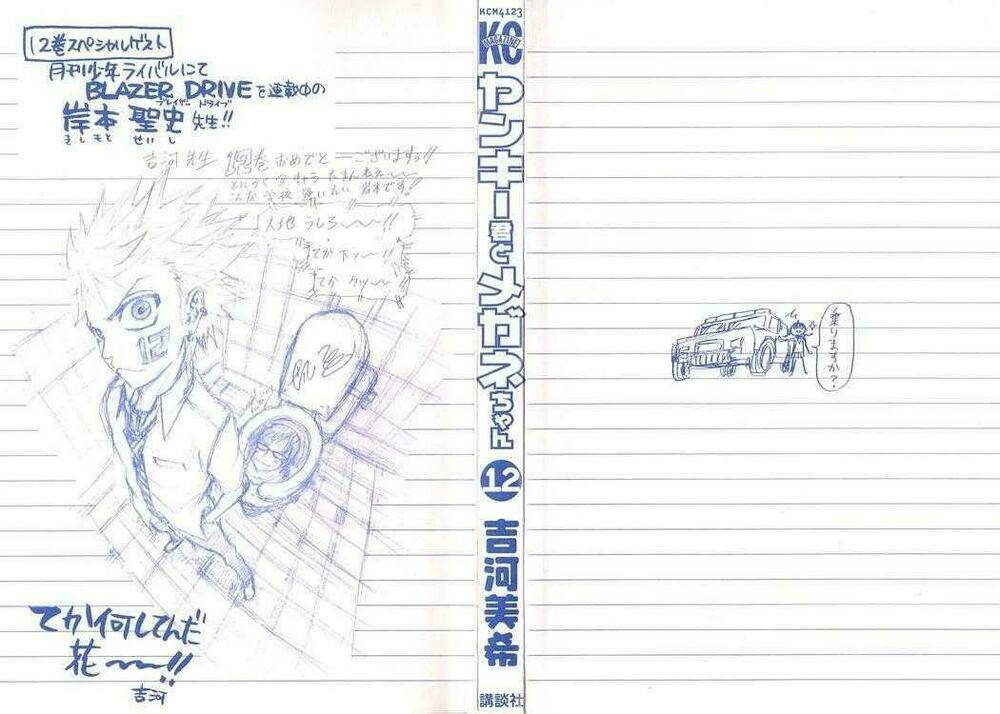 12巻スペシャルゲスト
月刊少年ライバルにて
BLAZER DRIVEを連載中の
ブレイザー ドライブ
岸本 聖史 先生!!
きしもと せいし
吉河先生 巻おめでとーございますっ!!
大地うしろ〜〜〜!!
12
てか何してんだ
花〜〜!!
吉河
KCM4123
KC
MAGAZINE
ヤンキー君とメガネちゃん
12
吉河美希
講談社
乗りますか?